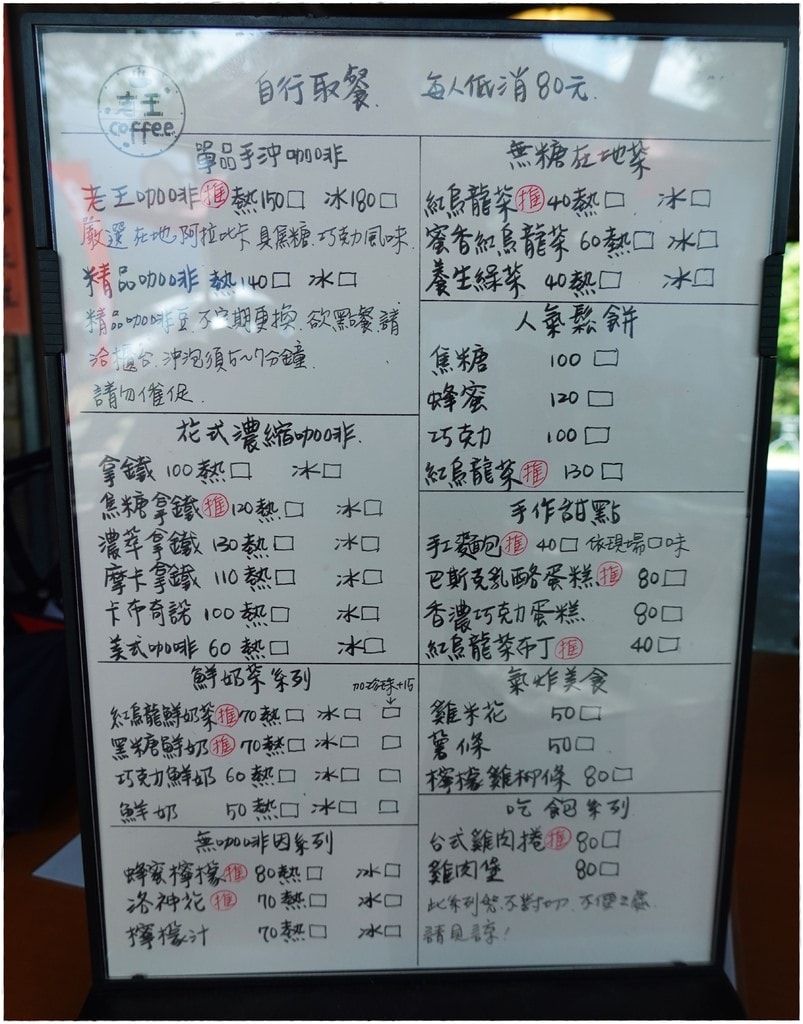 老王
coffee
自行取餐. 每人低消80元.
單品手沖咖啡
老王咖啡 推 熱150□ 冰180□
嚴選在地阿拉比卡具焦糖.巧克力風味.
精品咖啡 熱140□ 冰□
精品咖啡豆.不定期更換.欲點餐.請
洽櫃台.沖泡須5~7分鐘.
請勿催促.
花式濃縮咖啡.
拿鐵 100熱□ 冰□
焦糖拿鐵 推 120熱□ 冰□
濃萃拿鐵 130熱□ 冰□
摩卡拿鐵 110熱□ 冰□
卡布奇諾 100熱□ 冰□
美式咖啡 60熱□ 冰□
鮮奶茶系列 加珍珠+15
紅烏龍鮮奶茶 推 70熱□ 冰□ □
黑糖鮮奶 推 70熱□ 冰□ □
巧克力鮮奶 60熱□ 冰□ □
鮮奶 50熱□ 冰□ □
無咖啡因系列
蜂蜜檸檬 推 80熱□ 冰□
洛神花 推 70熱□ 冰□
檸檬汁 70熱□ 冰□
無糖在地茶
紅烏龍茶 推 40熱□ 冰□
蜜香紅烏龍茶 60熱□ 冰□
養生綠茶 40熱□ 冰□
人氣鬆餅
焦糖 100□
蜂蜜 120□
巧克力 100□
紅烏龍茶 推 130□
手作甜點
手工麵包 推 40□ 依現場口味
巴斯克乳酪蛋糕 推 80□
香濃巧克力蛋糕 80□
紅烏龍茶布丁 推 40□
氣炸美食
雞米花 50□
薯條 50□
檸檬雞柳條 80□
吃飽系列
台式雞肉捲 推 80□
雞肉堡 80□
此系列恕不對切.不便之處.
請見諒!